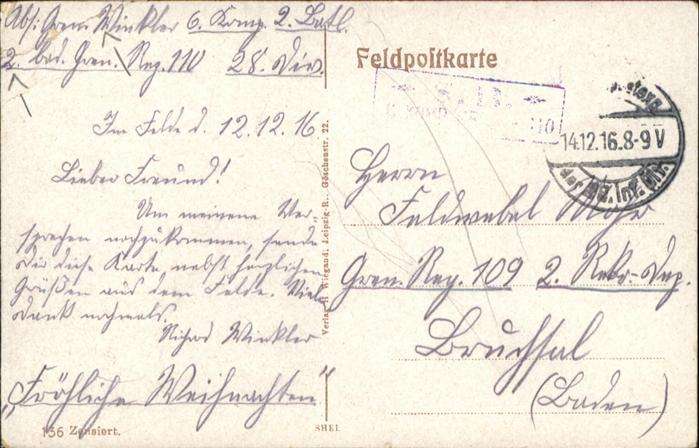 Abs: Gren. Winkler 6. Komp. 2. Batl.
2. bad. Gren. Reg. 110 28. Div.
Feldpostkarte
110
14.12.16.8-9 V
Im Felde d. 12.12.16
Lieber Freund!
Um meinem Ver-
sprechen nachzukommen, sende
Dir diese Karte nebst herzlichen
Grüßen aus dem Felde. Viele
Dank nochmals.
Richard Winkler
„Fröhliche Weihnachten"
Herrn
Feldwebel Mohr
Gren. Reg. 109 2. Rekr. Dep.
Bruchsal
(Baden)
Verlag H. Wiegand, Leipzig-R., Göschenstr. 22.
156 Zensiert.